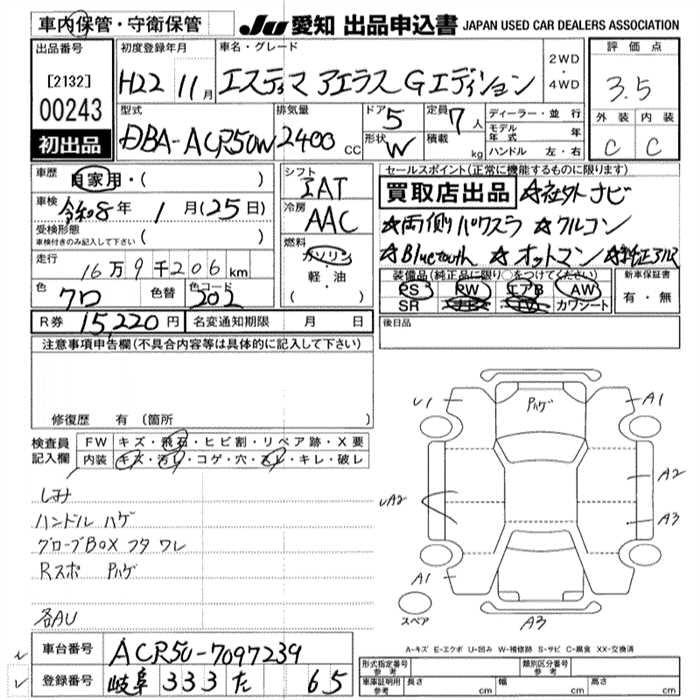 車内保管・守衛保管
JU 愛知 出品申込書 JAPAN USED CAR DEALERS ASSOCIATION
出品番号
[2132]
00243
初出品
初度登録年月
H22 11月
車名・グレード
エスティマ アエラス Gエディション
2WD
・
4WD
評価点
3.5
外装 内装
C C
型式
DBA-ACR50W
排気量
2400 CC
ドア
5
形状
W
定員
7人
積載
kg
ディーラー・並 行
モデル年式 年
ハンドル 左・右
車歴
自家用・( )
車検
令和8年 1月(25日)
受検形態
車検付きのみ記入して下さい ( )
走行
16万9千206km
色
クロ
色替
色コード
202
シフト
IAT
冷房
AAC
燃料
ガソリン
・
軽・油
( )
セールスポイント(正常に機能するものに限ります)
買取店出品 ☆社外ナビ
☆両側パワスラ ☆クルコン
☆Bluetooth ☆オットマン ☆純正アルミ
装備品(純正品に限り○をつけてください)
PS PW エアB AW
SR ナビ TV カワシート
新車保証書
有・無
R券 15,220円 名変通知期限 月 日
後日品
注意事項申告欄(不具合内容等は具体的に記入して下さい)
修復歴 有 (箇所 )
検査員
記入欄
FW キズ・飛石・ヒビ割・リペア跡・X要
内装 キズ・汚れ・コゲ・穴・スレ・キレ・破レ
しみ
ハンドル ハゲ
グローブBOX フタ ワレ
Rスポ Pハゲ
各AU
Pハゲ
U1
A1
UA2
A2
A3
A1
スペア
A3
A-キズ E-エクボ U-凹み W-補修跡 S-サビ C-腐食 XX-交換済
車台番号 ACR50-7097239
登録番号 岐阜 333 た 65
形式指定番号
参考
類別区分番号
参考
車庫証明用
参考
長さ cm 幅 cm 高さ cm